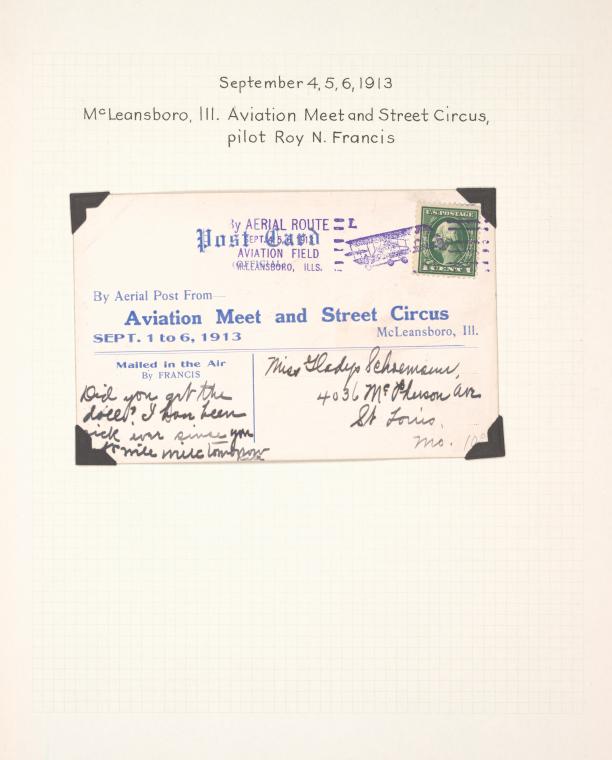 September 4, 5, 6, 1913
McLeansboro, Ill. Aviation Meet and Street Circus,
pilot Roy N. Francis
By AERIAL ROUTE
Post Card
SEPT. 4, 5, 6, 1913
AVIATION FIELD
(OFFICIAL)
McLEANSBORO, ILLS.
U.S. POSTAGE
1 CENT 1
By Aerial Post From
Aviation Meet and Street Circus
SEPT. 1 to 6, 1913
McLeansboro, Ill.
Mailed in the Air
By FRANCIS
Did you get the
I have been
sick ever since you
tomorrow
Miss Gladys Schoemann,
4036 McPherson Ave
St Louis,
Mo.